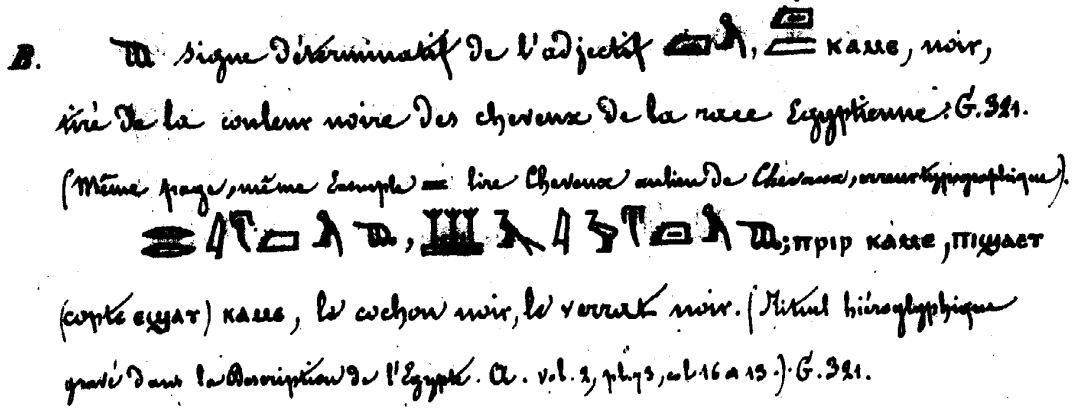 B. signe déterminatif de l'adjectif , ⲕⲁⲙⲉ, noir,
tiré de la couleur noire des cheveux de la race Egyptienne. G. 321.
(Même page, même Exemple = lire Cheveux au lieu de Chevaux, erreur typographique).
, ; ⲡⲣⲓⲣ ⲕⲁⲙⲉ, ⲡⲓϣⲁⲉⲧ
(copte ⲉϣⲁⲧ) ⲕⲁⲙⲉ, le cochon noir, le verrat noir. (Rituel hiéroglyphique
gravé dans la Description de l'Egypte. A. vol. 2, pl. 73, col 16 a 13.). G. 321.